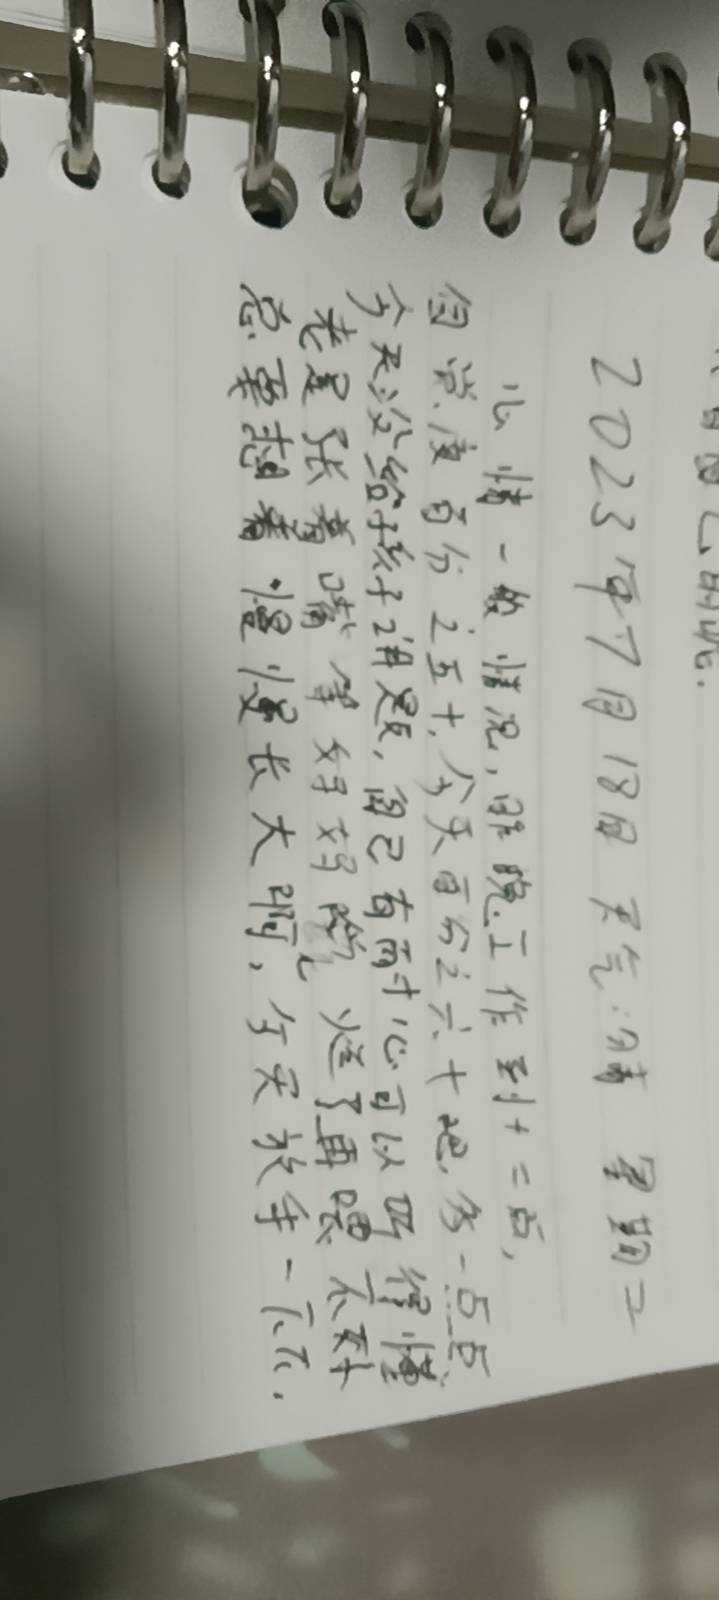 自己的呢.
2023年7月18日 天气:晴 星期二
心情一般情况,昨晚工作到十二点,
自觉度百分之五十,今天百分之六十吧,多一点点
今天没给孩子讲题,自己有耐心可以听得懂
老是张着嘴等妈妈 烂了再喂 不对
总要想着慢慢长大啊,今天放手一天.